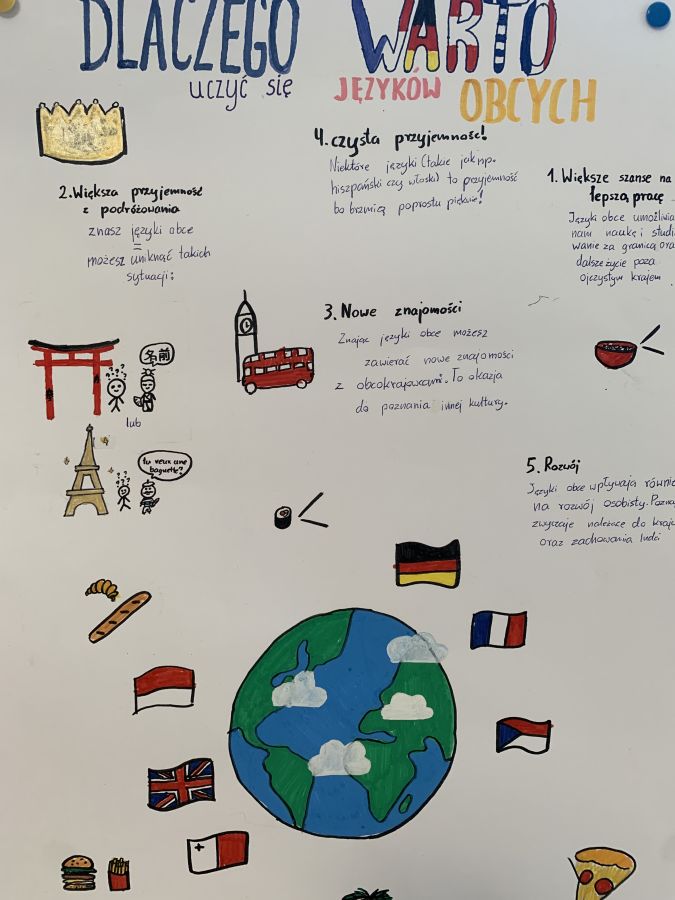 DLACZEGO WARTO
uczyć się JĘZYKÓW OBCYCH
4. czysta przyjemność!
Niektóre języki (takie jak np.
hiszpański czy włoski) to przyjemność
bo brzmią poprostu pięknie!
1. Większe szanse na
lepszą pracę
Języki obce umożliwia
nam naukę i studi
wanie za granicą ora
dalsze życie poza
ojczystym krajem
2. Większa przyjemność
z podróżowania
znasz języki obce
=
możesz uniknąć takich
sytuacji:
名前
lub
tu veux une
baguette?
3. Nowe znajomości
Znając języki obce możesz
zawierać nowe znajomości
z obcokrajowcami. To okazja
do poznania innej kultury.
5. Rozwój
Języki obce wpływają równie
na rozwój osobisty. Pozna
zwyczaje należące do kraju
oraz zachowania ludzi